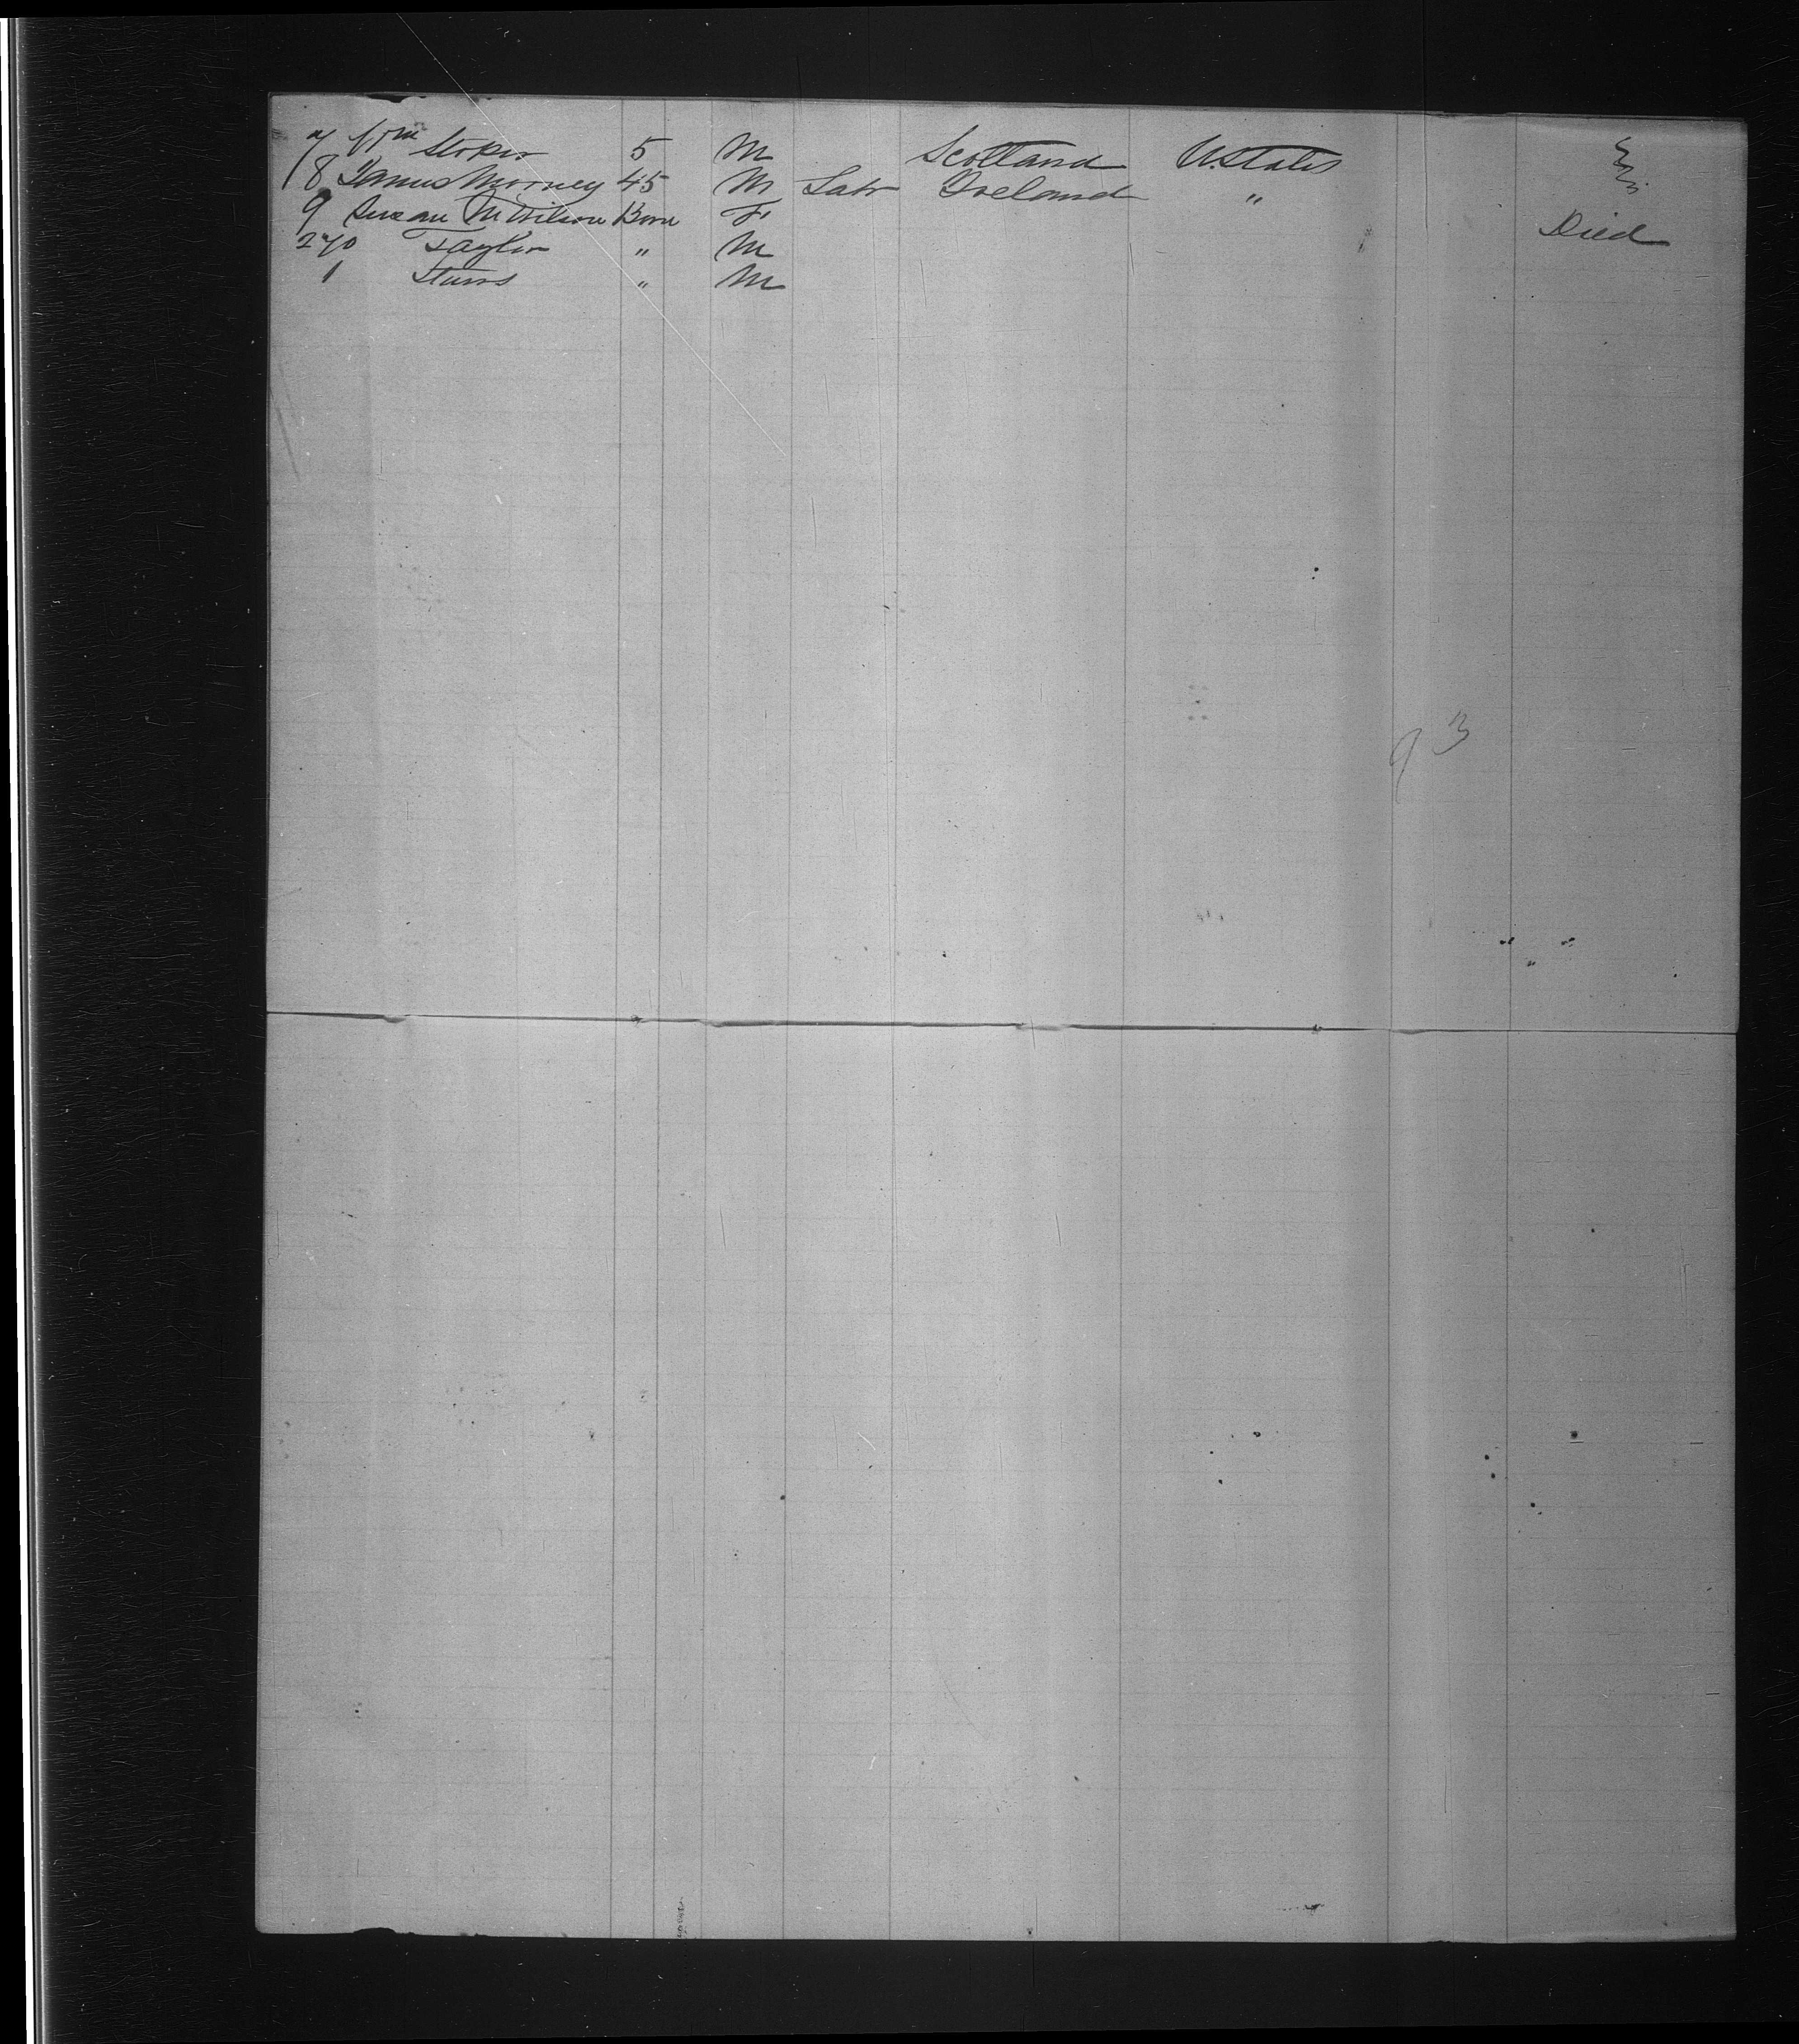 7 Wm Stokes 5 M Scotland U.States
8 James Morney 45 M Labr Ireland "
9 Susan M Wilson Born F
270 Taylor " M Died
1 " M
93